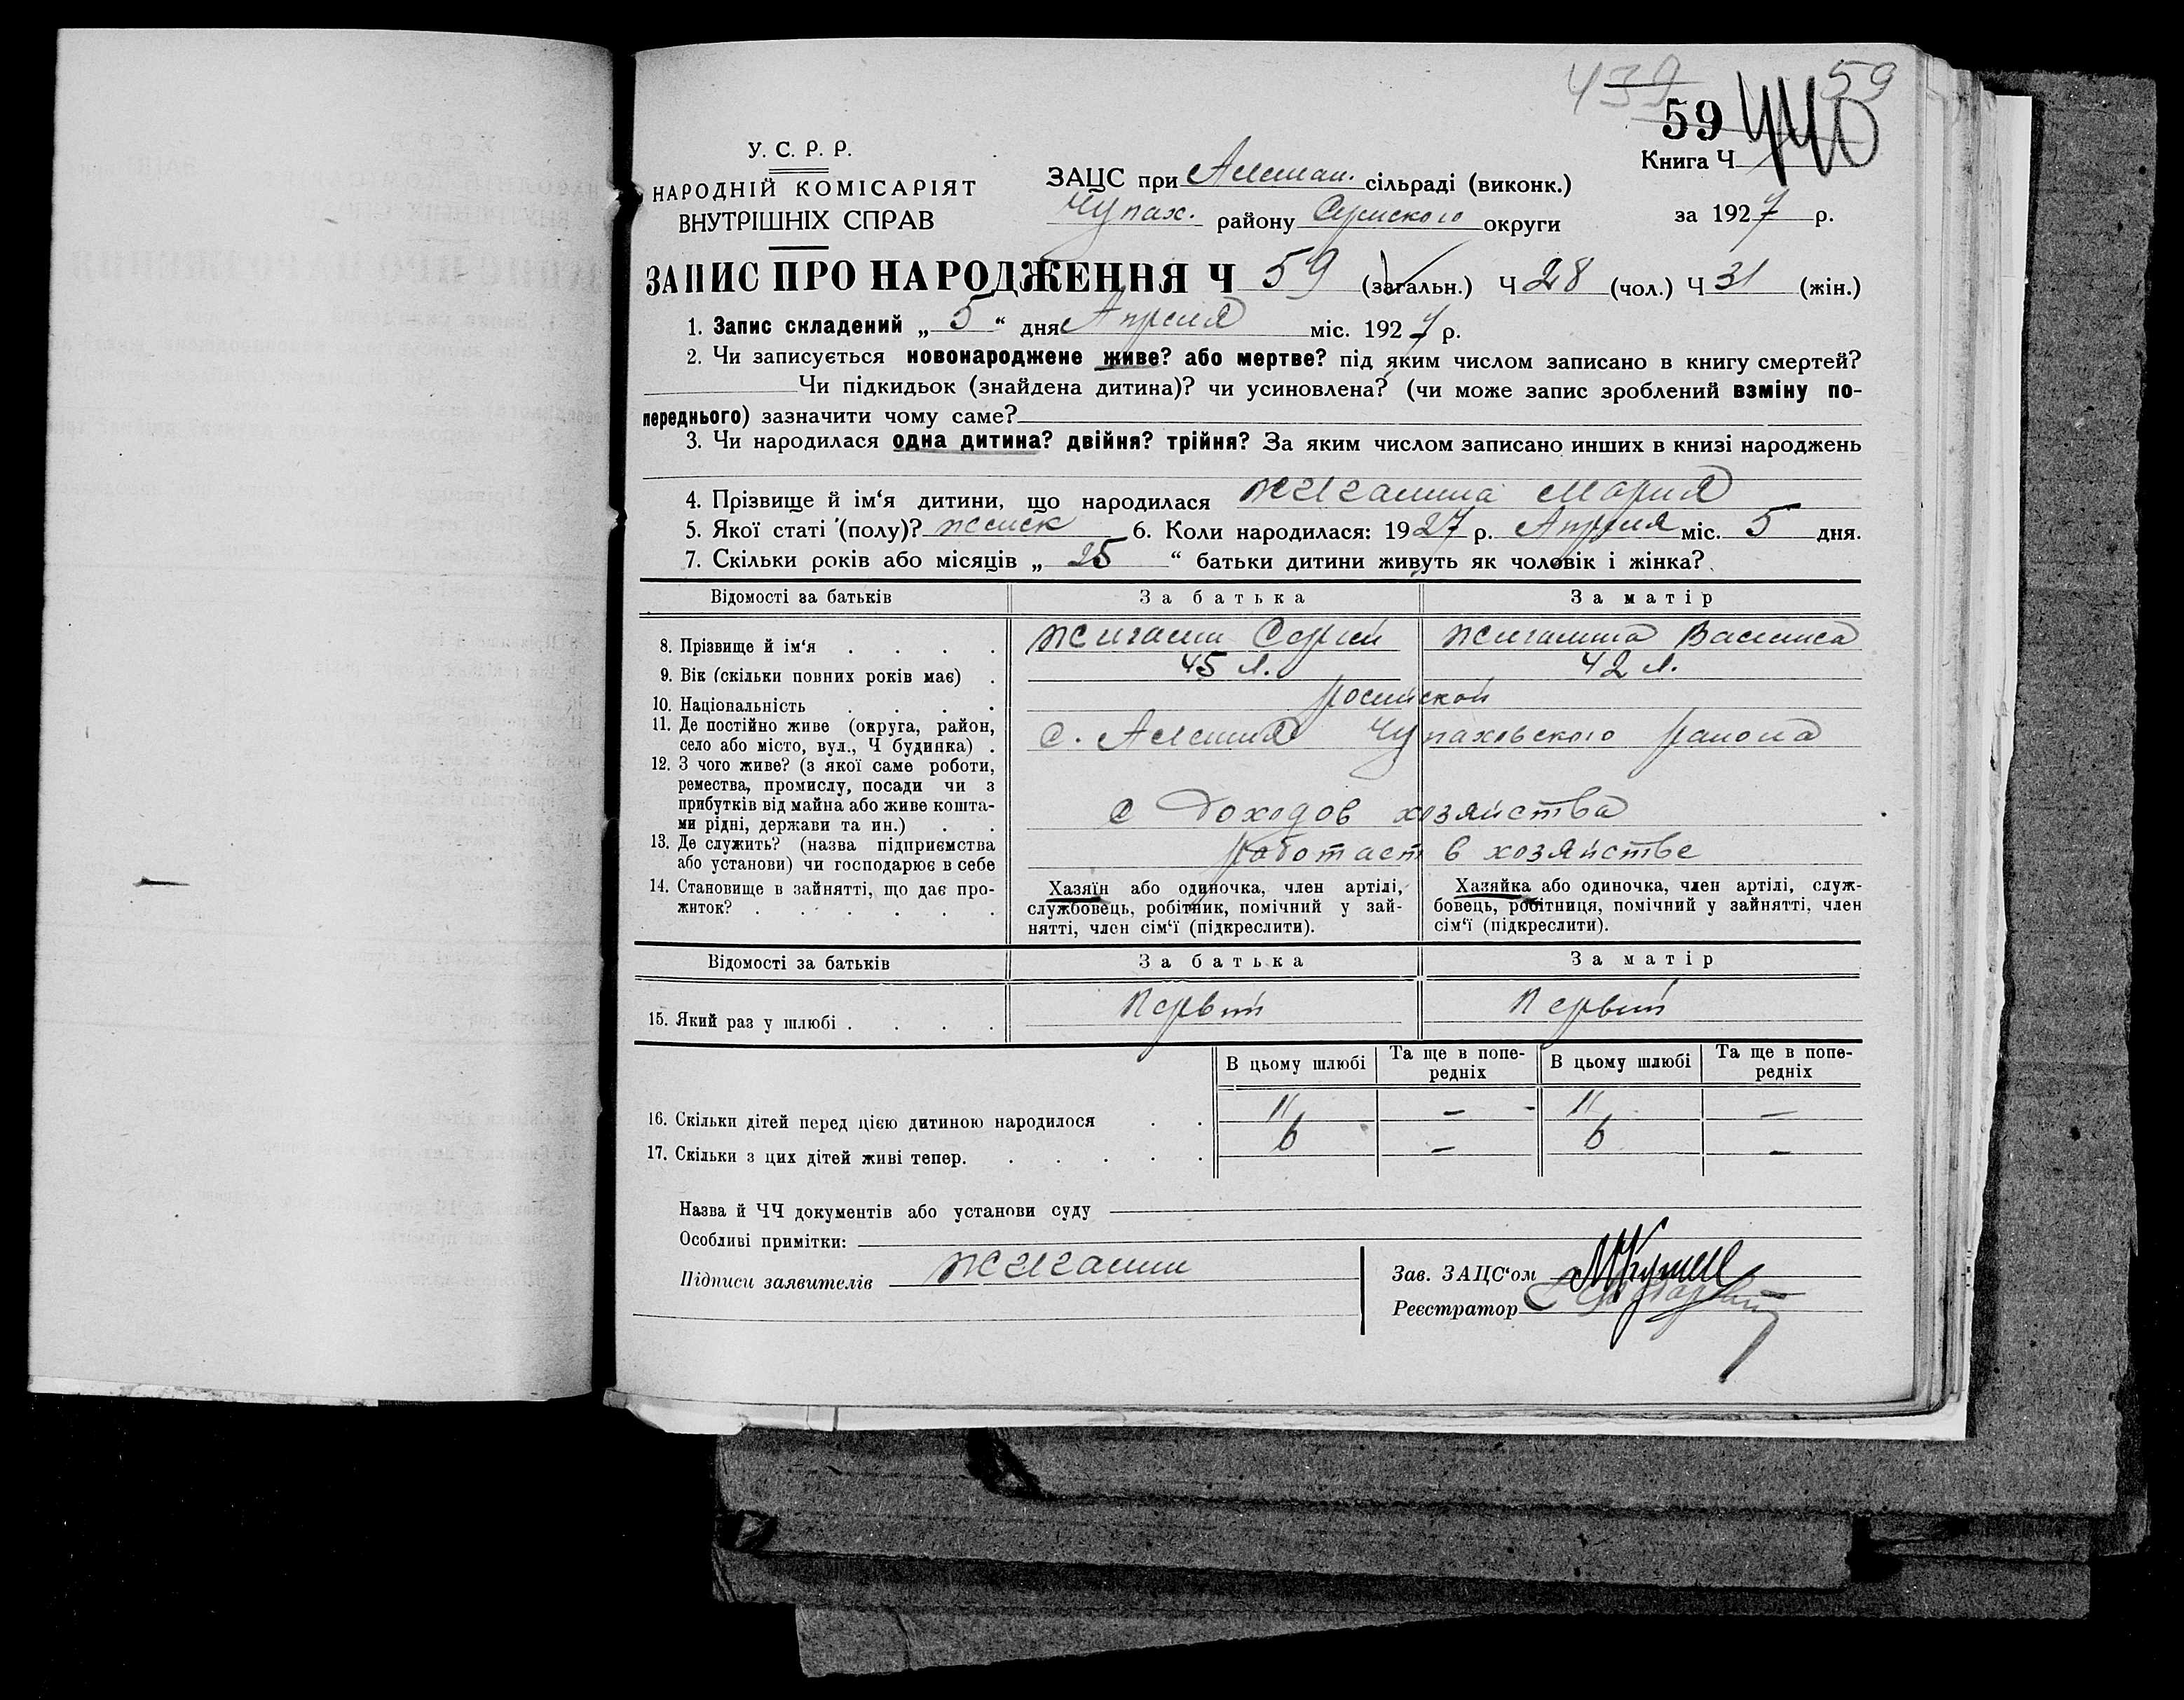 439 59
59 440
У. С. Р. Р.
НАРОДНІЙ КОМІСАРІЯТ
ВНУТРІШНІХ СПРАВ
Книга Ч
ЗАЦС при Алешан. сільраді (виконк.)
Чупах. району Сумского округи
за 1927 р.
ЗАПИС ПРО НАРОДЖЕННЯ Ч 59 (загальн.) Ч 28 (чол.) Ч 31 (жін.)
1. Запис складений „ 5 “ дня Апреля міс. 1927 р.
2. Чи записується новонароджене живе? або мертве? під яким числом записано в книгу смертей?
Чи підкидьок (знайдена дитина)? чи усиновлена? (чи може запис зроблений взміну по-
переднього) зазначити чому саме?
3. Чи народилася одна дитина? двійня? трійня? За яким числом записано инших в книзі народжень
4. Прізвище й ім‘я дитини, що народилася Жигалина Мария
5. Якої статі (полу)? женск 6. Коли народилася: 1927 р. Апреля міс. 5 дня.
7. Скільки років або місяців „ 25 “ батьки дитини живуть як чоловік і жінка?
Відомості за батьків За батька За матір
8. Прізвище й ім‘я . . . . Жигалин Сергей Жигалина Василиса
9. Вік (скільки повних років має) . 45 л. 42 л.
10. Національність . . . . российской
11. Де постійно живе (округа, район,
село або місто, вул., Ч будинка) . с. Алешня Чупаховского района
12. З чого живе? (з якої саме роботи,
ремества, промислу, посади чи з
прибутків від майна або живе кошта-
ми рідні, держави та ин.) . . с доходов хозяйства
13. Де служить? (назва підприємства
або установи) чи господарює в себе работает в хозяйстве
14. Становище в зайнятті, що дає про-
житок? . . . . . .
Хазяїн або одиночка, член артілі,
службовець, робітник, помічний у зай-
нятті, член сім‘ї (підкреслити).
Хазяйка або одиночка, член артілі, служ-
бовець, робітниця, помічний у зайнятті, член
сім‘ї (підкреслити).
Відомості за батьків За батька За матір
15. Який раз у шлюбі . . . . Первый Первый
В цьому шлюбі Та ще в попе-
редніх В цьому шлюбі Та ще в попе-
редніх
16. Скільки дітей перед цією дитиною народилося . . 11 — 11 —
17. Скільки з цих дітей живі тепер. . . . . . 6 — 6 —
Назва й ЧЧ документів або установи суду
Особливі примітки:
Підписи заявителів Жигалин
Зав. ЗАЦС‘ом
Реєстратор